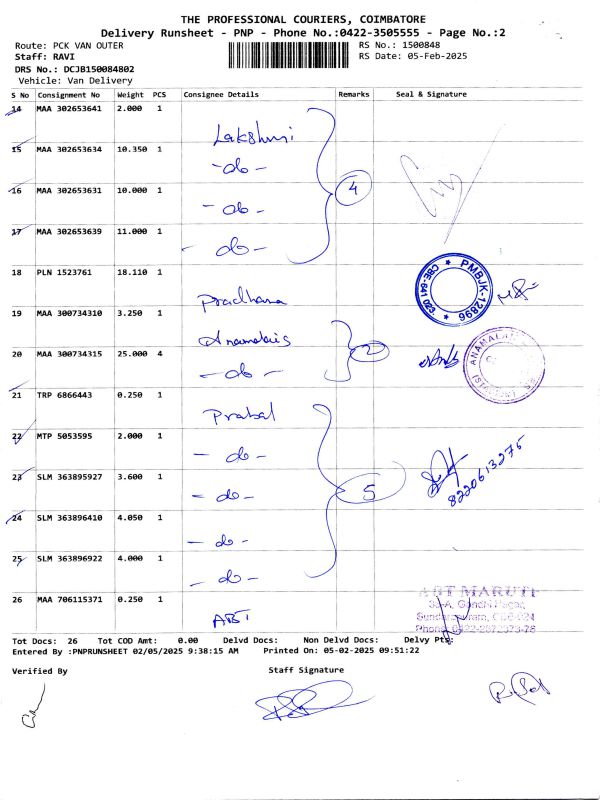 THE PROFESSIONAL COURIERS, COIMBATORE
Delivery Runsheet - PNP - Phone No.:0422-3505555 - Page No.:2
Route: PCK VAN OUTER RS No.: 1500848
Staff: RAVI RS Date: 05-Feb-2025
DRS No.: DCJB150084802
Vehicle: Van Delivery
S No Consignment No Weight PCS Consignee Details Remarks Seal & Signature
14 MAA 302653641 2.000 1 Lakshmi
15 MAA 302653634 10.350 1 -do-
16 MAA 302653631 10.000 1 -do- 4
17 MAA 302653639 11.000 1 -do-
18 PLN 1523761 18.110 1 Pradhana
PMBJK-12896 ★ CBE-641 020 ★
19 MAA 300734310 3.250 1 Anamalais
20 MAA 300734315 25.000 4 -do- 2
21 TRP 6866443 0.250 1 Prabal
22 MTP 5053595 2.000 1 -do-
23 SLM 363895927 3.600 1 -do- 5 8220613275
24 SLM 363896410 4.050 1 -do-
25 SLM 363896922 4.000 1 -do-
26 MAA 706115371 0.250 1 ABT
ABT MARUTI
Gandhi Nagar,
Tot Docs: 26 Tot COD Amt: 0.00 Delvd Docs: Non Delvd Docs: Delvy Pts:
Entered By :PNPRUNSHEET 02/05/2025 9:38:15 AM Printed On: 05-02-2025 09:51:22
Verified By Staff Signature